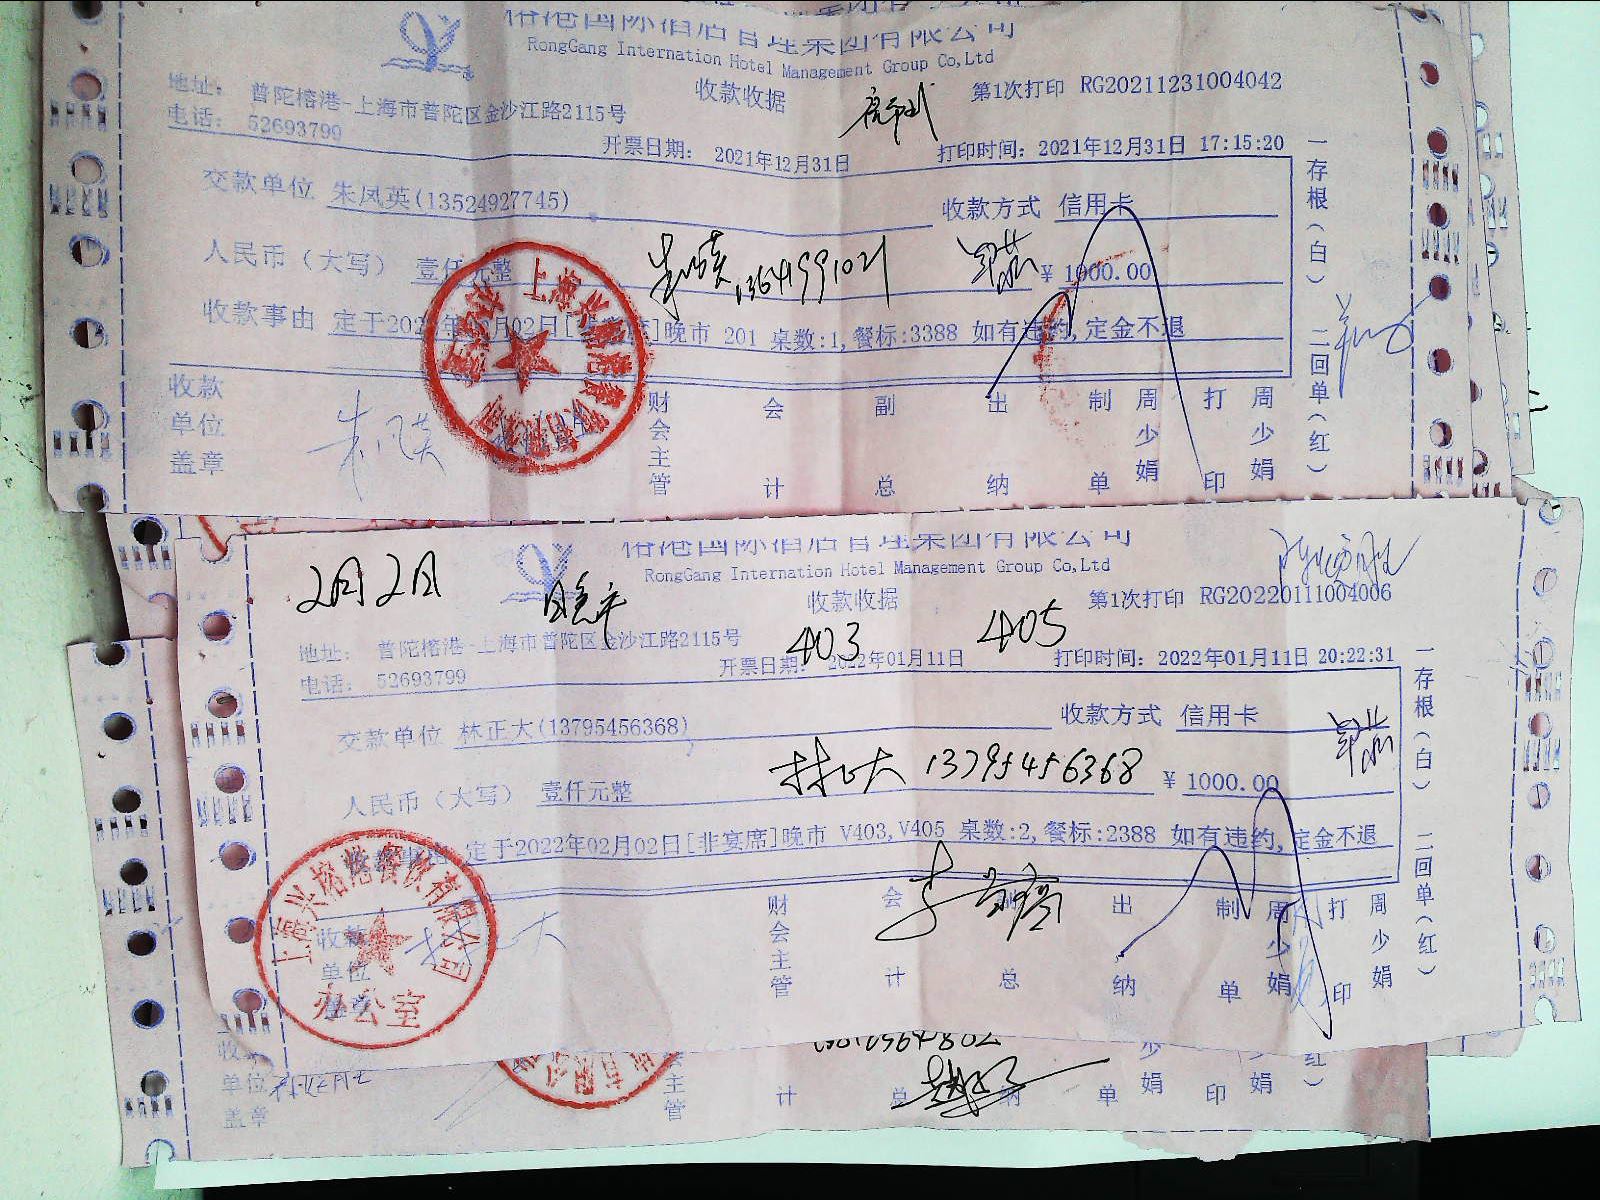 榕港国际酒店管理集团有限公司
RongGang Internation Hotel Management Group Co,Ltd
收款收据
第1次打印 RG20211231004042
地址: 普陀榕港-上海市普陀区金沙江路2115号
电话: 52693799
开票日期: 2021年12月31日
打印时间: 2021年12月31日 17:15:20
交款单位 朱凤英(13524927745)
收款方式 信用卡
人民币(大写) 壹仟元整
13641991021
¥ 1000.00
收款事由 定于202 年 月02日[ ]晚市 201 桌数:1,餐标:3388 如有违约,定金不退
收款单位盖章
财会主管
会计
副总
出纳
制单 周少娟
打印 周少娟
一存根(白) 二回单(红)
朱凤英
2月2日
晚市
榕港国际酒店管理集团有限公司
RongGang Internation Hotel Management Group Co,Ltd
收款收据
第1次打印 RG20220111004006
403
405
地址: 普陀榕港-上海市普陀区金沙江路2115号
电话: 52693799
开票日期: 2022年01月11日
打印时间: 2022年01月11日 20:22:31
交款单位 林正大(13795456368)
收款方式 信用卡
人民币(大写) 壹仟元整
林正大 13795456368
¥ 1000.00
收款事由 定于2022年02月02日[非宴席]晚市 V403,V405 桌数:2,餐标:2388 如有违约,定金不退
上海兴榕港餐饮有限公司
办公室
收款单位盖章
林正大
财会主管
会计
副总
出纳
制单 周少娟
打印 周少娟
一存根(白) 二回单(红)
收
单位
盖章
会主管
计
总
纳
单 少娟
印 少娟
(红)